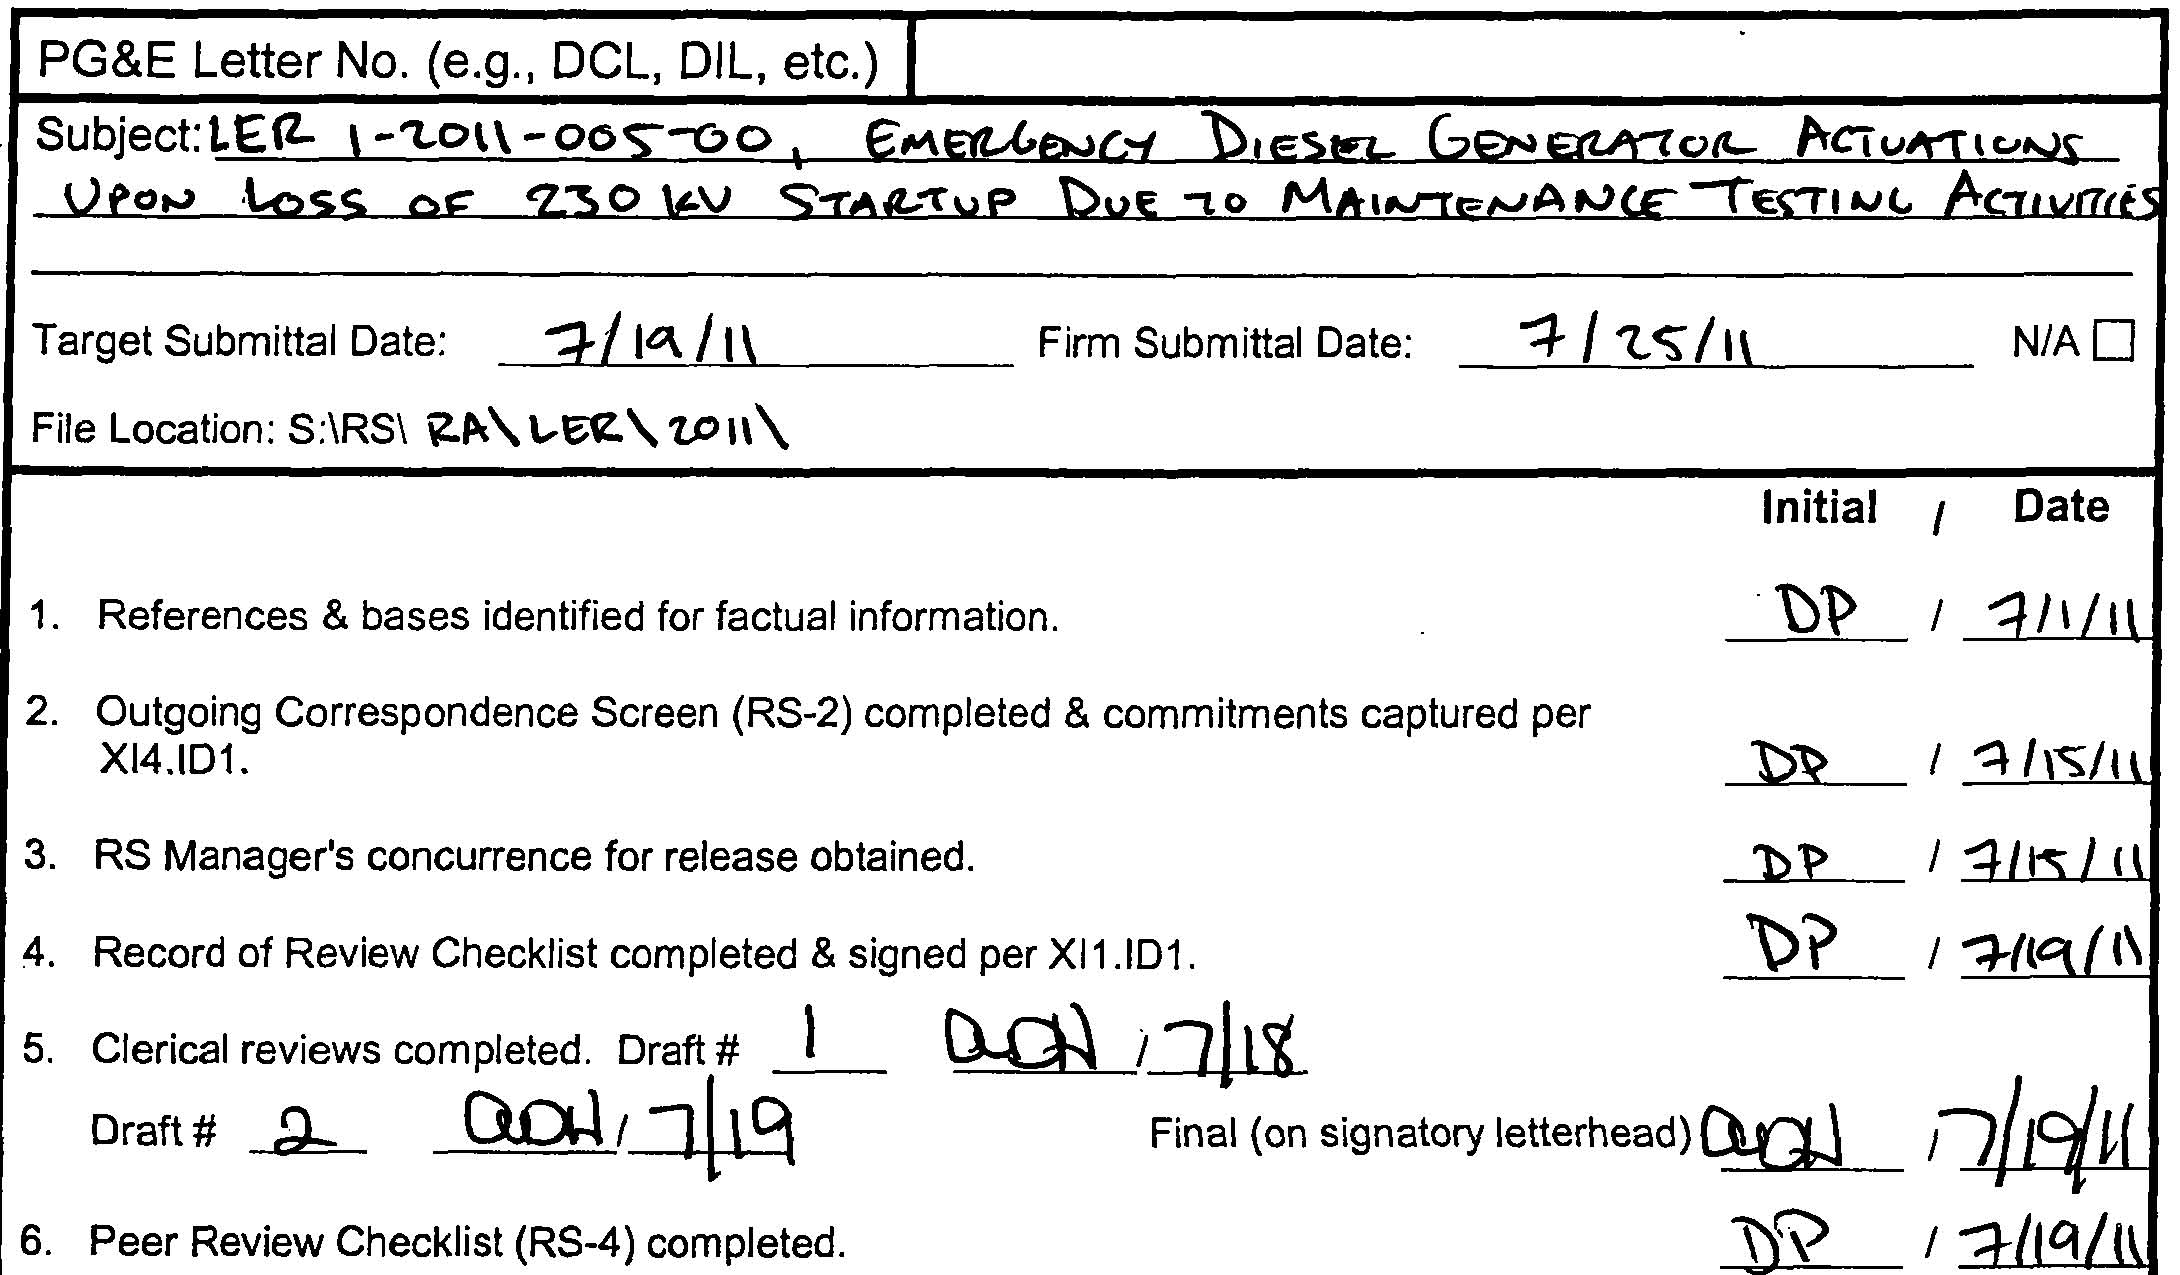 PG&E Letter No. (e.g., DCL, DIL, etc.)
Subject: LER 1-2011-005-00, EMERGENCY DIESEL GENERATOR ACTUATIONS
UPON LOSS OF 230 KV STARTUP DUE TO MAINTENANCE TESTING ACTIVITIES
Target Submittal Date: 7/19/11 Firm Submittal Date: 7/25/11 N/A ☐
File Location: S:\RS\ RA\LER\2011\
Initial / Date
1. References & bases identified for factual information. DP / 7/1/11
2. Outgoing Correspondence Screen (RS-2) completed & commitments captured per
XI4.ID1. DP / 7/15/11
3. RS Manager's concurrence for release obtained. DP / 7/15/11
4. Record of Review Checklist completed & signed per XI1.ID1. DP / 7/19/11
5. Clerical reviews completed. Draft # 1 / 7/18
Draft # 2 / 7/19 Final (on signatory letterhead) / 7/19/11
6. Peer Review Checklist (RS-4) completed. DP / 7/19/11